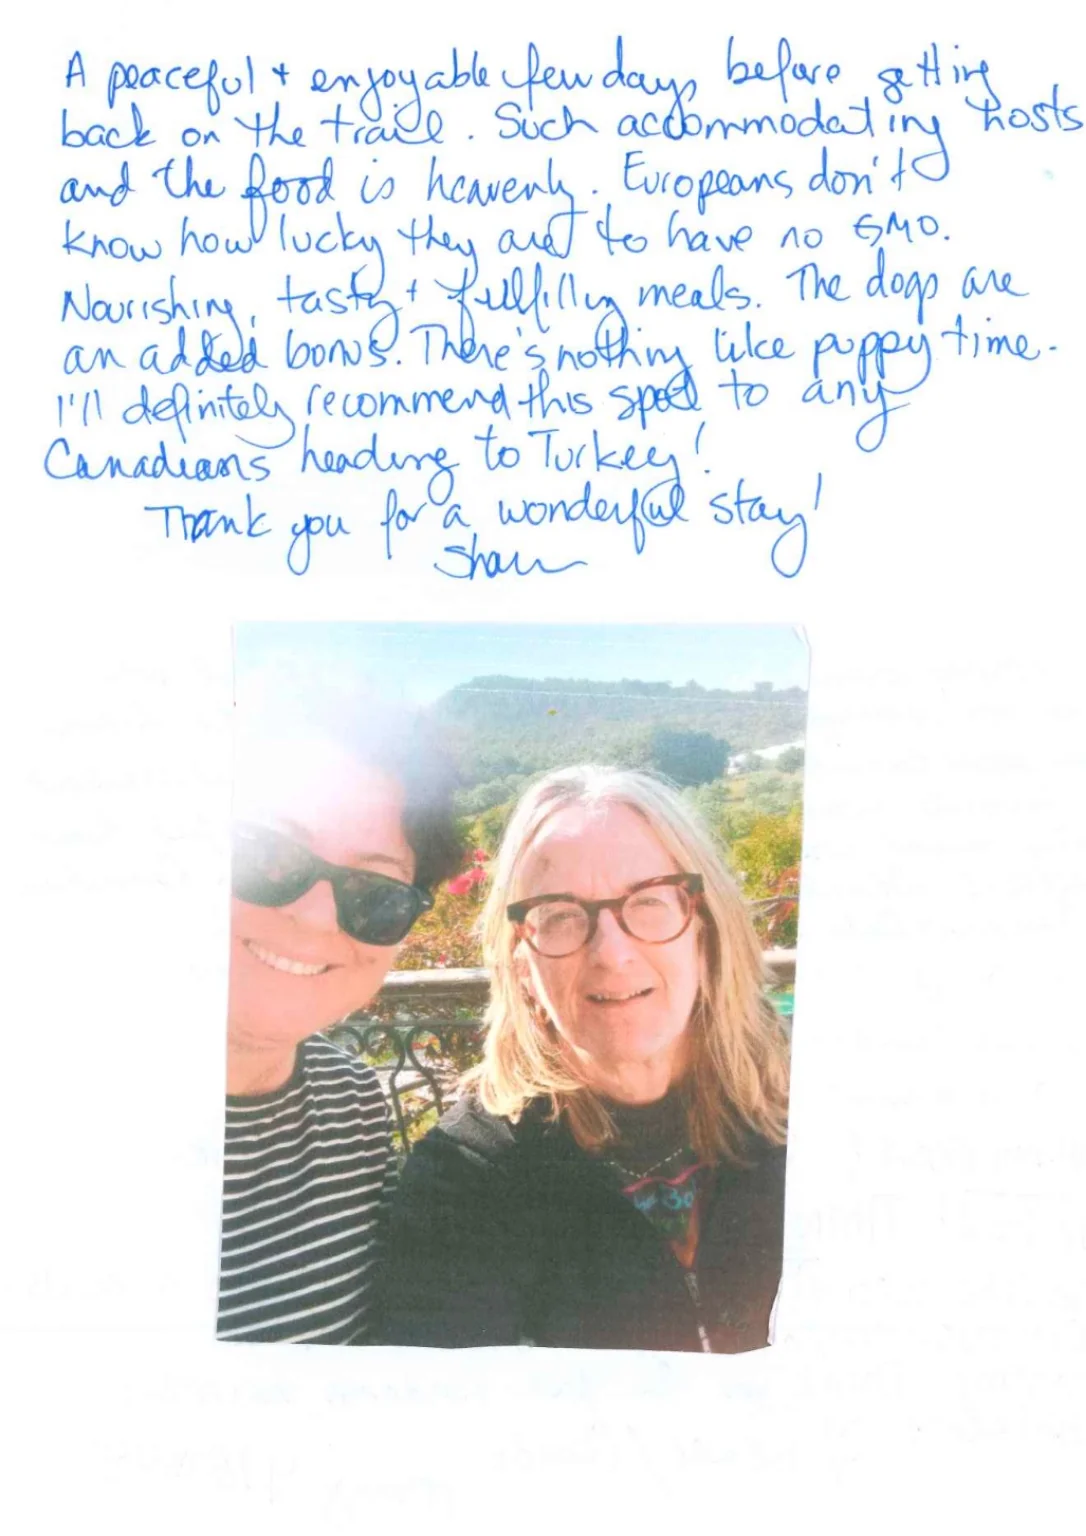 A peaceful + enjoyable few days before getting
back on the trail. Such accommodating hosts
and the food is heavenly. Europeans don't
know how lucky they are to have no GMO.
Nourishing, tasty + fulfilling meals. The dogs are
an added bonus. There's nothing like puppy time.
I'll definitely recommend this spot to any
Canadians heading to Turkey!
Thank you for a wonderful stay!